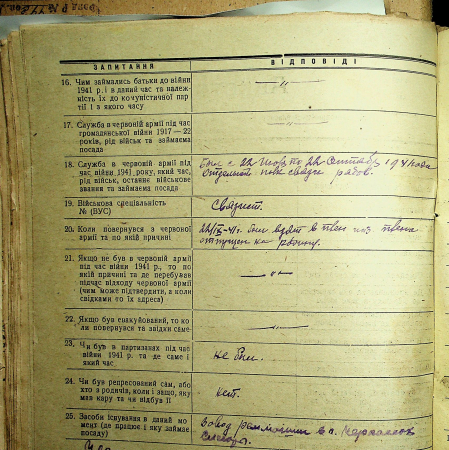 ЗАПИТАННЯ
ВІДПОВІДІ
16. Чим займались батьки до війни
1941 р. і в даний час та належ-
ність їх до комуністичної пар-
тії і з якого часу
— „ —
17. Служба в червоній армії під час
громадянської війни 1917—22
років, рід військ та займаєма
посада
— „ —
18. Служба в червоній армії під
час війни 1941 року, який час,
рід військ, останнє військове
звання та займаєма посада
Был с 22 по 22 1941 года
отдельный полк связи рядов.
19. Військова спеціальність
№ (ВУС)
Связист.
20. Коли повернувся з червоної
армії та по якій причині
22/IX-41г. был взят в плен из плена
отпущен на родину.
21. Якщо не був в червоній армії
під час війни 1941 р., то по
якій причині та де перебував
підчас відходу червоної армії
(чим може підтвердити, а коли
свідками то їх адреса)
— „ —
22. Якщо був евакуйований, то ко-
ли повернувся та звідки саме
— „ —
23. Чи був в партизанах під час
війни 1941 р. та де саме і
який час
не был.
24. Чи був репресований сам, або
хто з родичів, коли і защо, як
мав кару та чи відбув її
нет.
25. Засоби існування в даний мо-
мент (де працює і яку займає
посаду)
завод